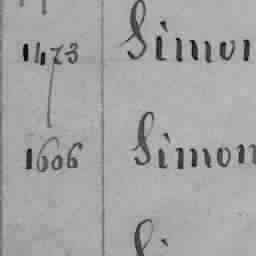 1473 Simon
1606 Simon